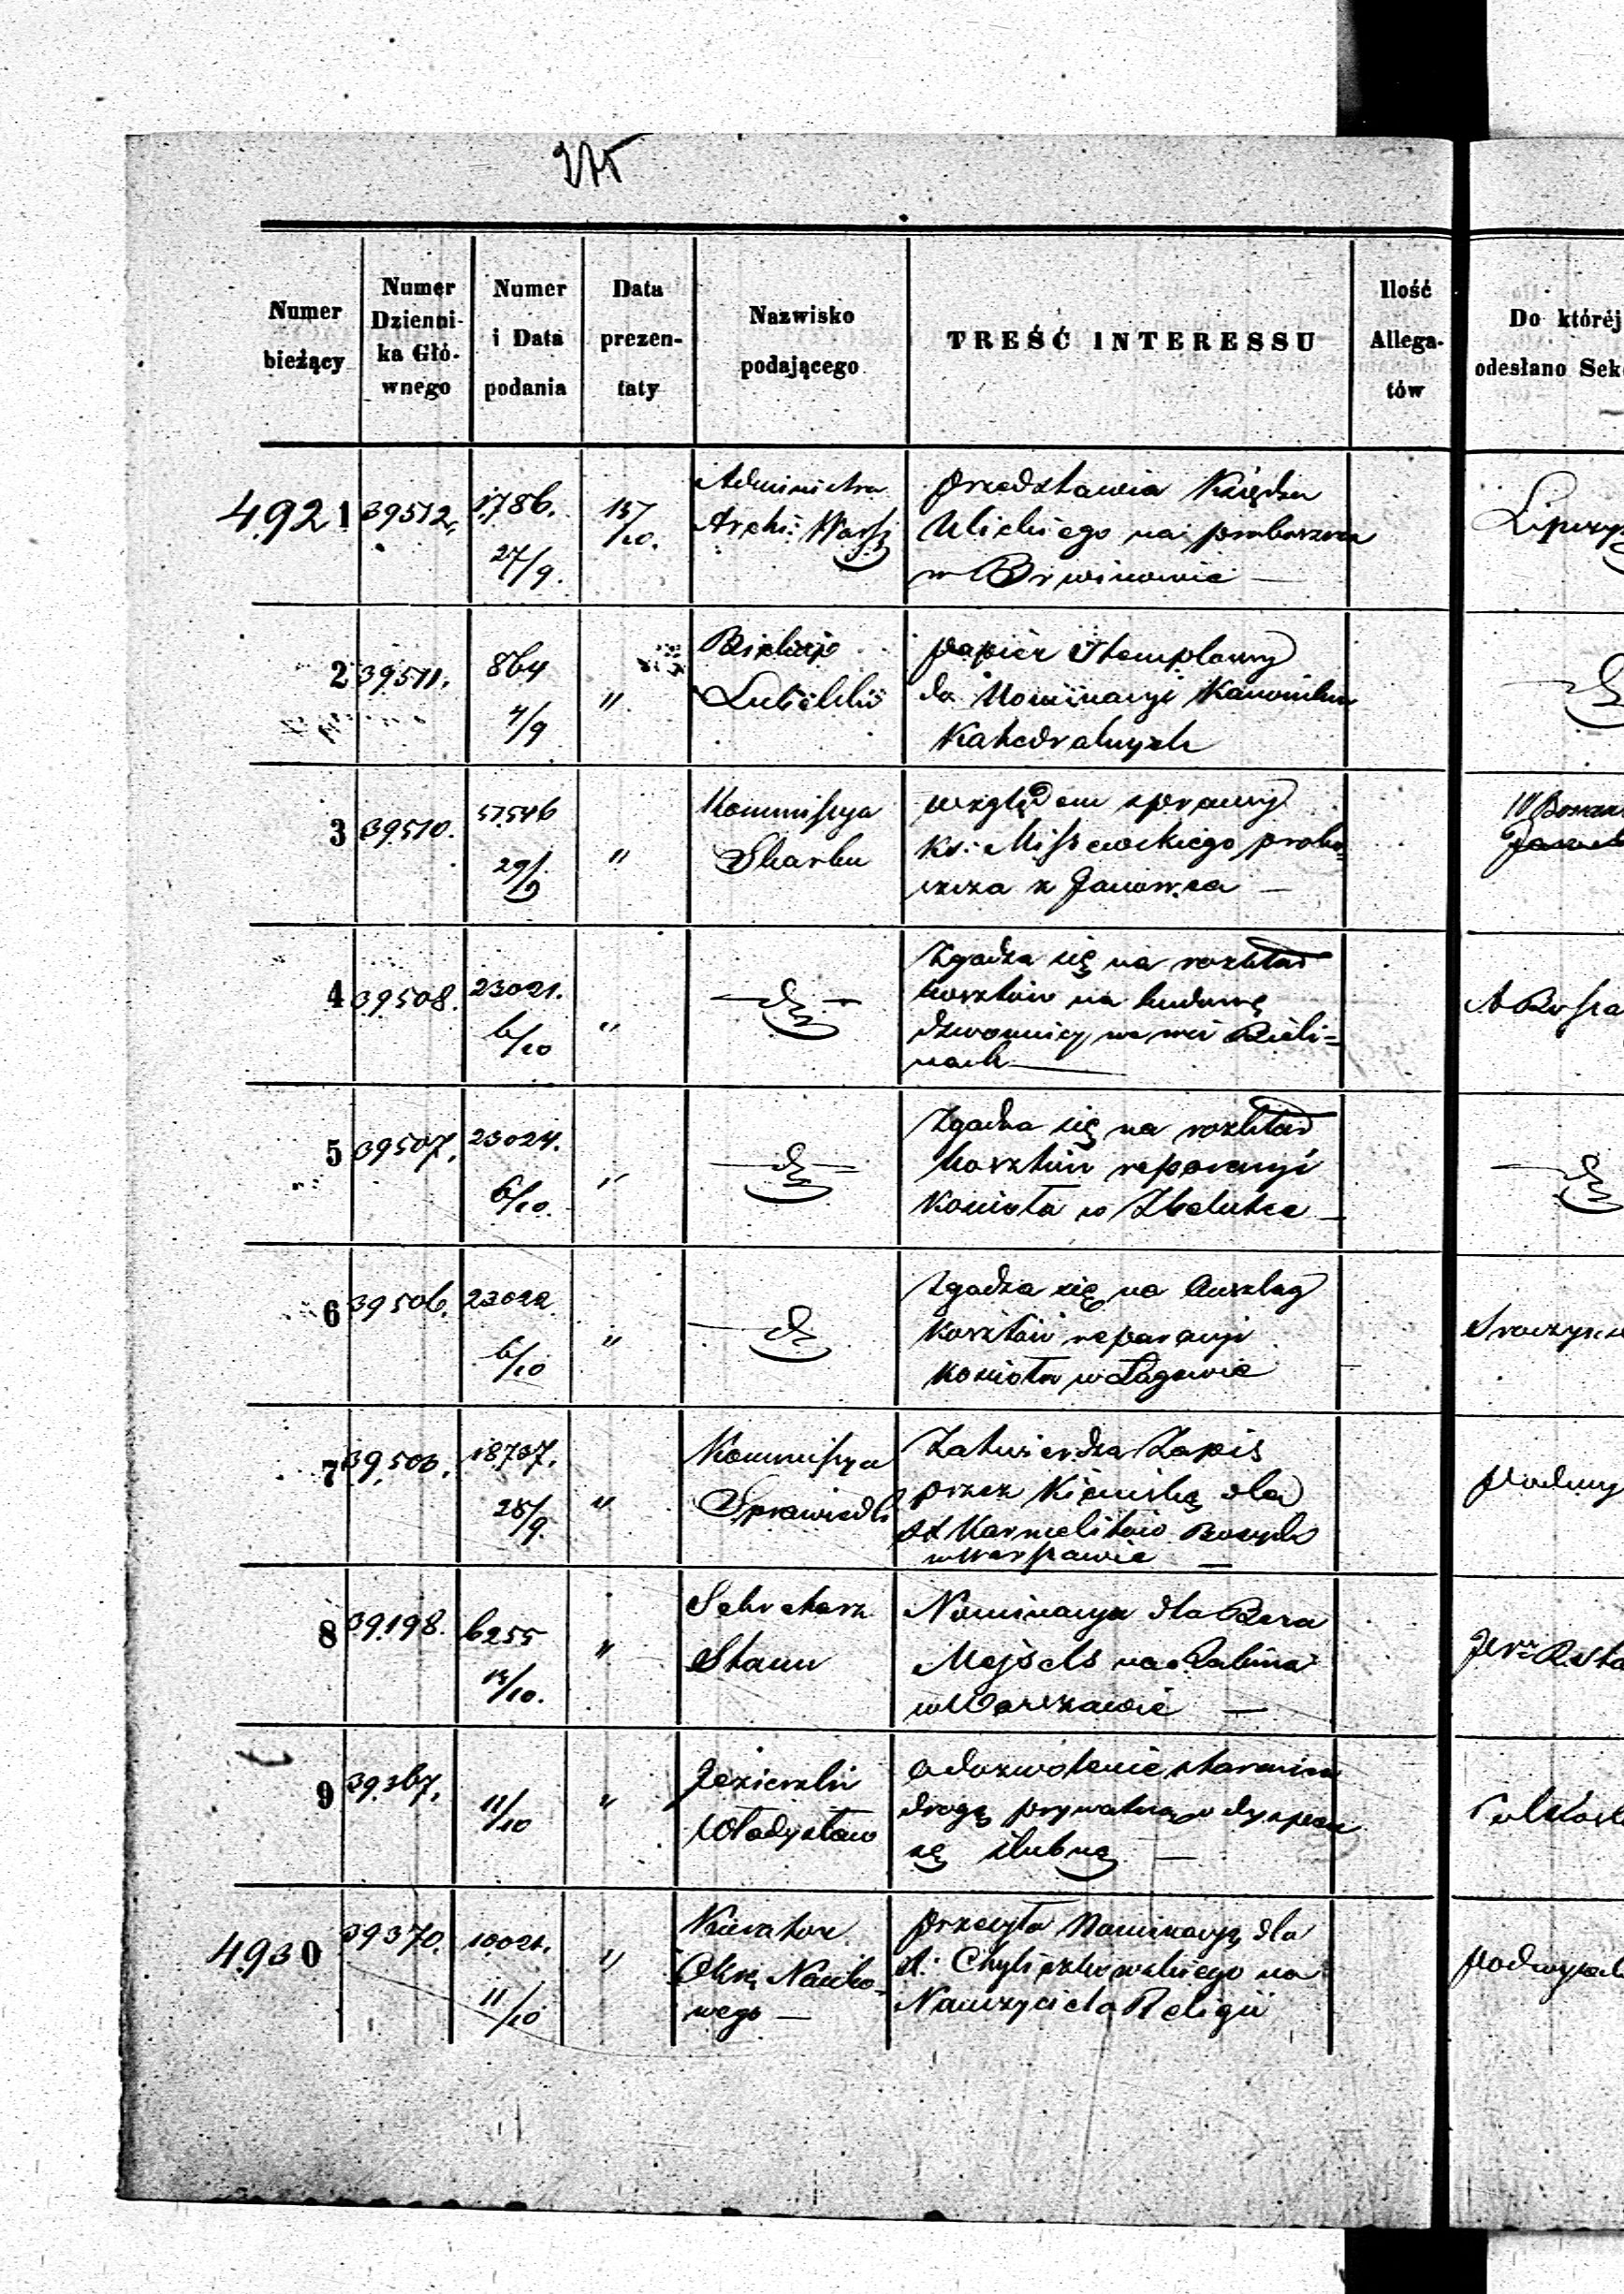 275
Numer bieżący
Numer Dzienni- ka Głó- wnego
Numer i Data podania
Data prezen- taty
Nazwisko podającego
TREŚĆ INTERESSU
Ilość Allega- tów
Do któréj odesłano
4921 39512. 1786. 27/9. 15/10.
Administra
Archi: Warsz
przedstawia Księdza
Ulickiego na proboszcza
w Brwinowie —
2 39511. 864 4/9 "
Biskup
Lubelski
papier stemplowy
do Nominacyi Kanoników
Katedralnych
3 39510. 51546 29/9 "
Kommissya
Skarbu
względem sprawy
Ks: Missewskiego probo-
szcza z Janowca —
4 39508. 23021. 6/10 "
Zgadza się na rozkład
kosztów na budowę
dzwonnicy we wsi Bieli=
nach —
5 39507. 23024. 6/10. "
Zgadza się na rozkład
kosztów reparacyi
Kościoła w Zbelutce —
6 39506. 23022. 6/10 "
Zgadza się na
Kosztów reparacyi
Kościoła w Łagowie
7 39,503. 18707. 28/9. "
Kommissya
Sprawiedli
Zatwierdza Zapis
przez dla
XX Karmelitów Bosych
w Warszawie —
8 39198. 6255 /10. "
Sekretarz
Stanu
Nominacya dla Bera
Mejsels na Rabina
w Warszawie —
9 39367. 11/10 "
Jezierski
Władysław
o dozwolenie starania
drogą prywatną o dyspen
sę ślubną —
4930 39370. 10021. 11/10 "
Kurator
Okrę Nauko-
wego —
przesyła Nominacyę dla
X. Chyliczkowskiego na
Nauczyciela Religii